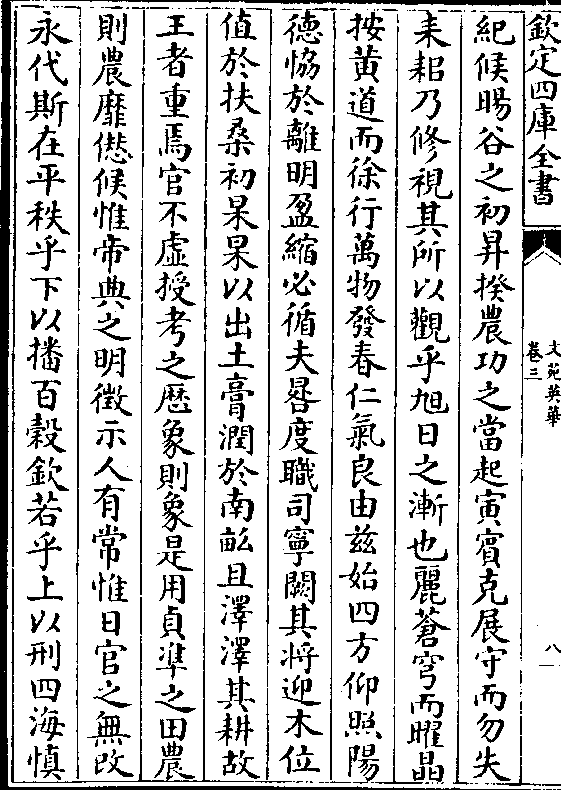 欽定四庫全書
文苑英華
卷三
八
紀候暘谷之初昇揆農功之當起寅賓克展守而勿失
耒耜乃修視其所以觀乎旭日之漸也麗蒼穹而曜晶
按黄道而徐行萬物發春仁氣良由兹始四方仰照陽
德恊於離明盈縮必循夫晷度職司寧闕其將迎木位
值於扶桑初杲杲以出土膏潤於南畝且澤澤其耕故
王者重焉官不虛授考之歴象則象是用貞凖之田農
則農靡愆候惟帝典之明徴示人有常惟日官之無改
永代斯在平秩乎下以播百穀欽若乎上以刑四海慎